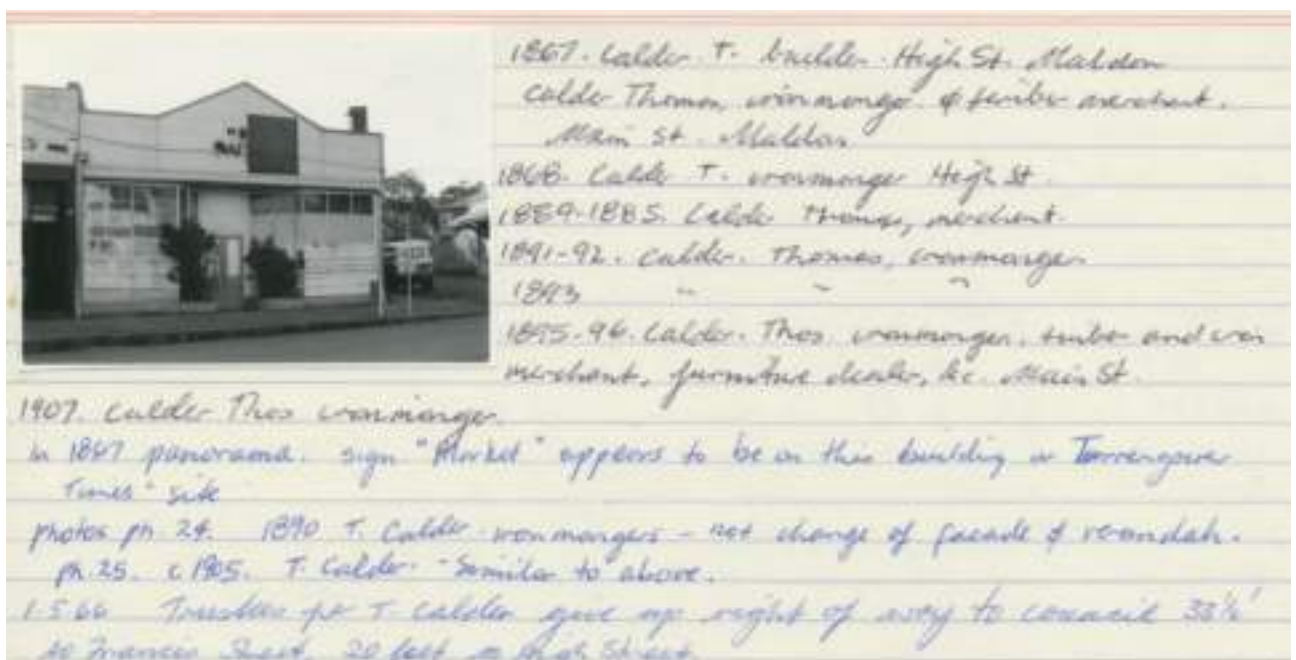 1867. Calder T. builder. High St. Maldon
Calder Thomas, ironmonger & timber merchant.
Main St. Maldon
1868. Calder T. ironmonger High St.
1889-1885. Calder Thomas, merchant.
1891-92. Calder. Thomas, ironmonger.
1893 " " "
1895-96. Calder. Thos. ironmonger, timber and iron
merchant, furniture dealer, &c. Main St.
1907. Calder Thos ironmonger.
In 1867 panorama. sign "Market" appears to be on this building or Tarrengower
Times" site
photos ph. 24. 1890 T. Calder ironmongers - not change of facade & verandah.
ph. 25. c1905. T. Calder. - Similar to above.
1.5.66 Trustees for T. Calder give up right of way to council 33½'
to Francis Street, 20 feet High Street.